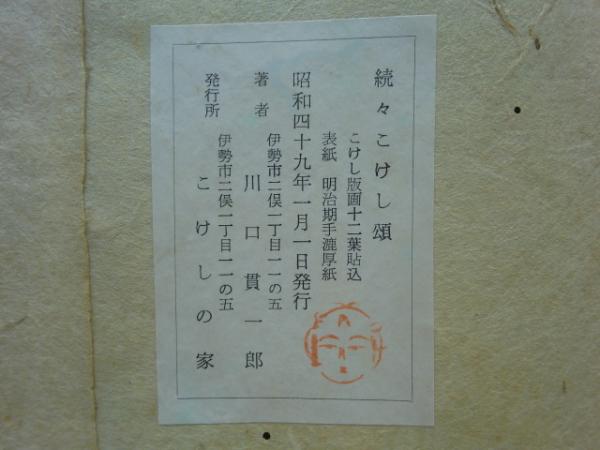 続々こけし頌
こけし版画十二葉貼込
表紙 明治期手漉厚紙
昭和四十九年一月一日発行
伊勢市二俣一丁目一一の五
著者 川口貫一郎
伊勢市二俣一丁目一一の五
発行所 こけしの家